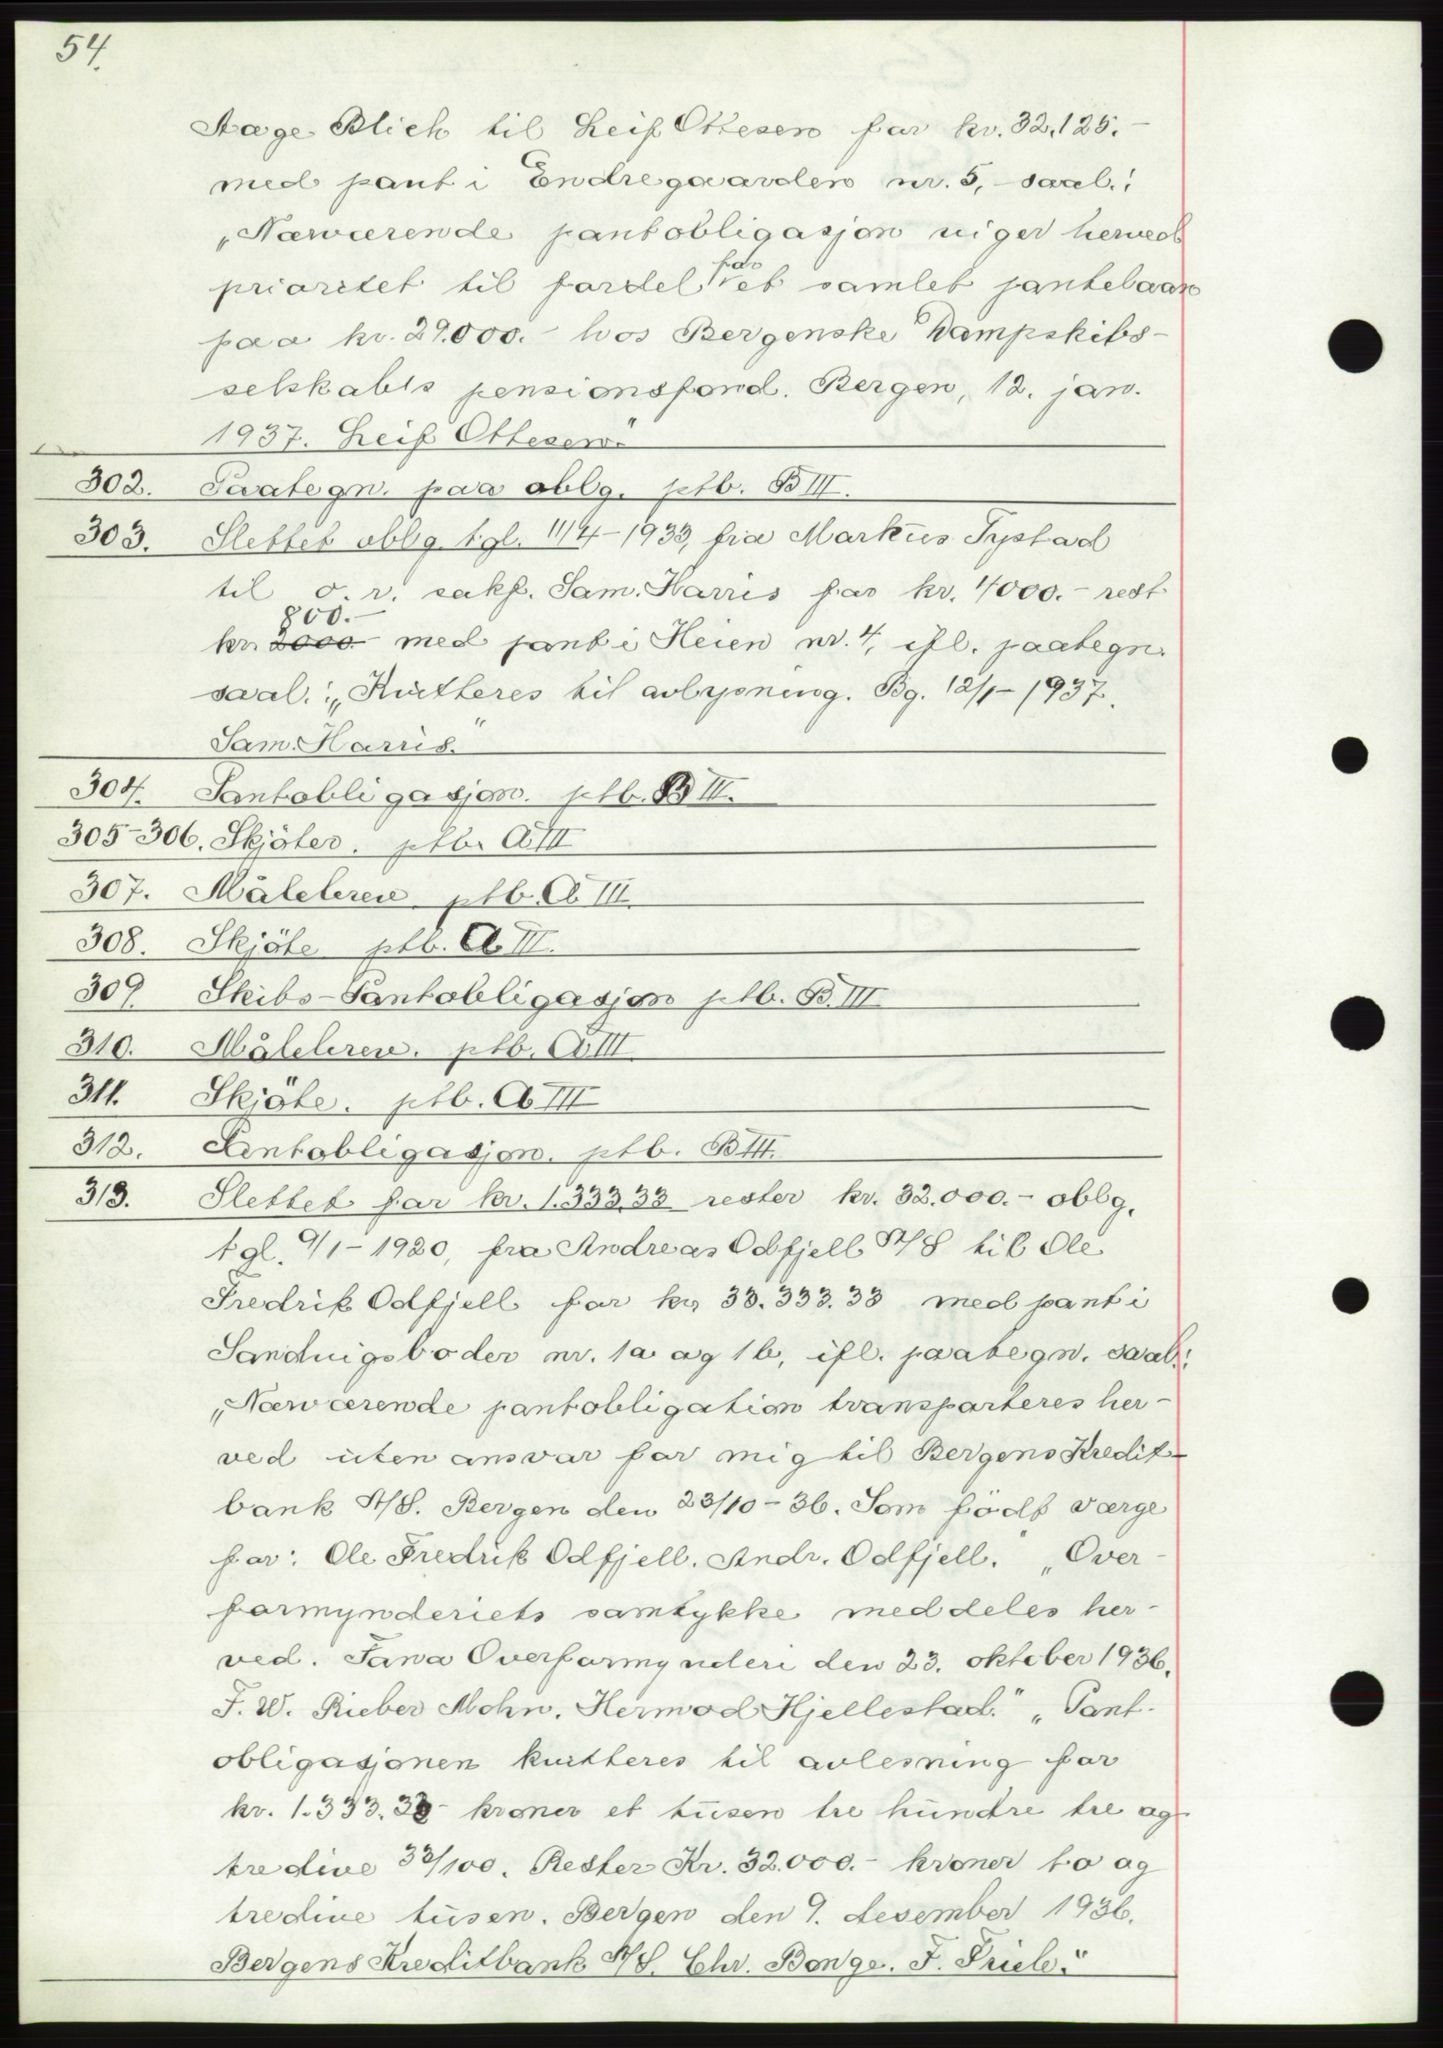 54.
Aage Blich til Leif Ottesen for kr. 32.125.-
med pant i Endregaarden nr. 5, saal.:
„Nærværende pantobligasjon viger herved
prioritet til fordel for et samlet pantelaan
paa kr. 29.000.- hos Bergenske Dampskibs-
selskabs pensionsfond. Bergen, 12. jan.
1937. Leif Ottesen."
302. Paategn. paa oblg. ptb. B III.
303. Slettet oblg. tgl. 11/4-1933, fra Markus Tystad
til o. r. sakf. Sam. Harris for kr. 4000.- rest
800.-
kr. 2000 med pant i Heien nr. 4, ifl. paategn.
saal.: „Kvitteres til avlysning. Bg. 12/1-1937.
Sam. Harris."
304. Pantobligasjon. ptb. B III.
305-306. Skjöter. ptb. A III
307. Målebrev ptb. A III.
308. Skjöte ptb. A III.
309. Skibs-Pantobligasjon ptb. B. III
310. Målebrev. ptb. A III.
311. Skjöte. ptb. A III
312. Pantobligasjon. ptb. B III.
313. Slettet for kr. 1.333.33 rester kr. 32.000.- oblg.
tgl. 9/1-1920, fra Andreas Odfjell A/S til Ole
Fredrik Odfjell for kr. 33.333.33 med pant i
Sandvigsboder nr. 1a og 1b, ifl. paategn. saal.:
„Nærværende pantobligation transporteres her-
ved uten ansvar for mig til Bergens Kredit-
bank A/S. Bergen den 23/10-36. Som födt værge
for: Ole Fredrik Odfjell. Andr. Odfjell." „Over-
formynderiets samtykke meddeles her-
ved. Fana Overformynderi den 23. oktober 1936.
F. W. Rieber Mohn. Hermod Hjellestad." „Pant-
obligasjonen kvitteres til avlesning for
kr. 1.333.33- kroner et tusen tre hundre tre og
tredive 33/100. Rester Kr. 32.000.- kroner to og
tredive tusen. Bergen den 9. desember 1936.
Bergens Kreditbank A/S. Chr. Bonge. F. Friele."